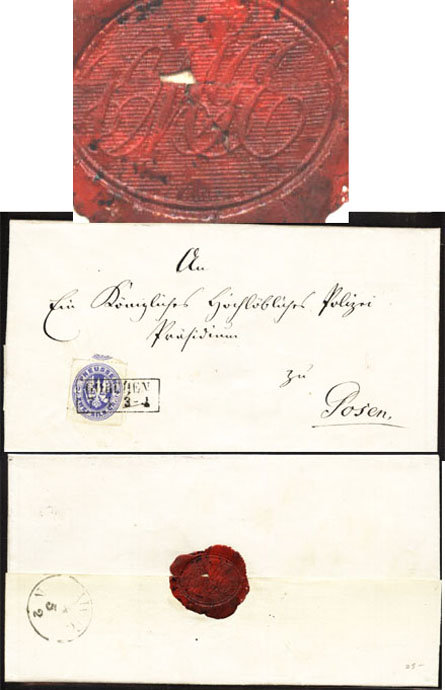 An
Ein Königliches Hochlöbliches Polizei
Präsidium
zu
Posen.
PREUSSEN
3-4
5
2
25-